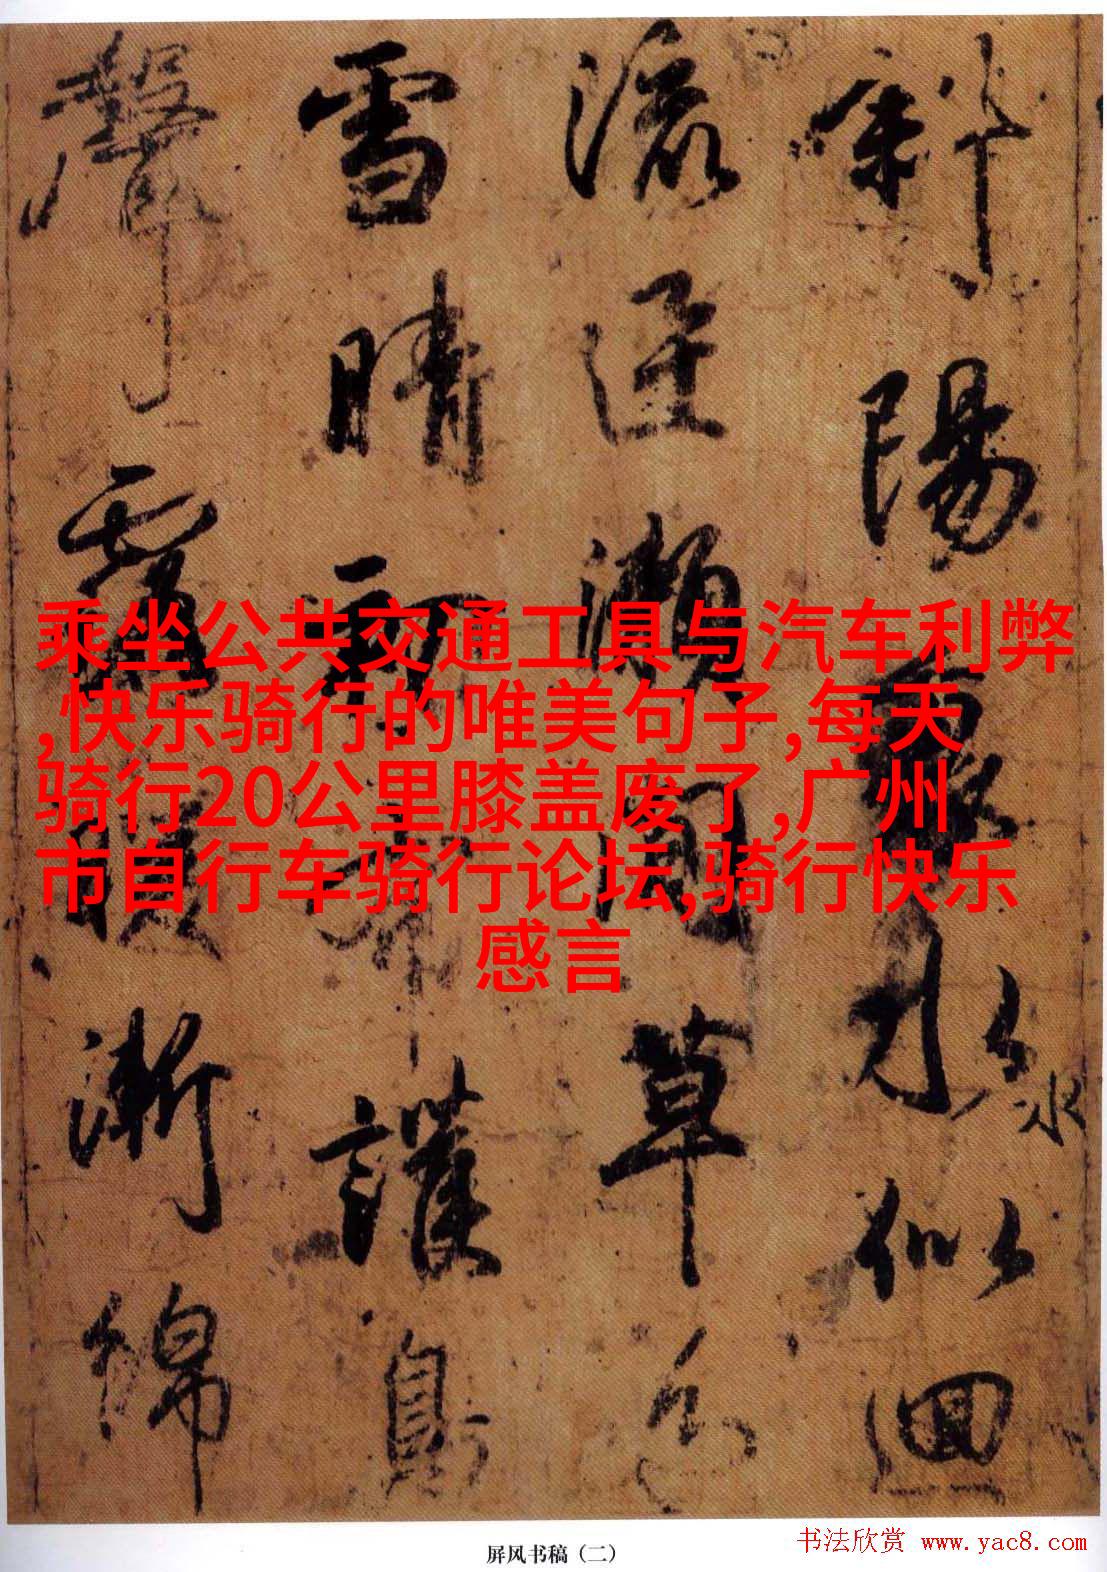 斜陽水似回
流瀨草色
雪晴初護鳥
聲漸綿
乘坐公共交通工具与汽车利弊
,快乐骑行的唯美句子,每天
骑行20公里膝盖废了,广州
市自行车骑行论坛,骑行快乐
感言
屏风书稿（二）
书法欣赏 www.yac8.com